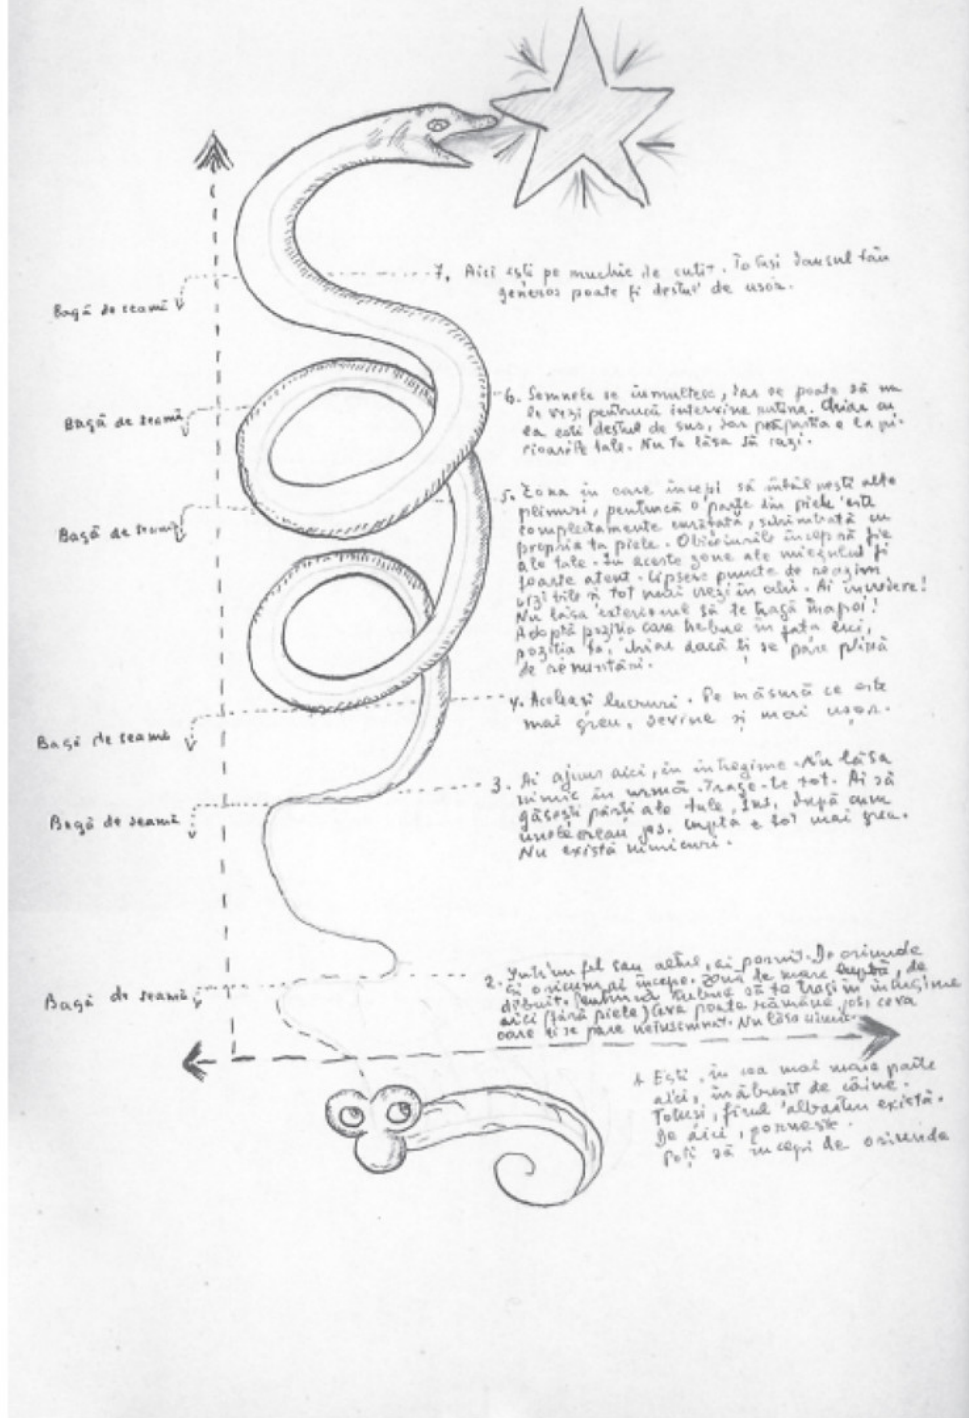 7. Aici ești pe muchie de cuțit. Totuși dansul tău
generos poate fi destul de ușor.
Bagă de seamă
6. Semnele se înmulțesc, dar se poate să nu
le vezi pentrucă intervine rutina. Chiar cu
ea ești destul de sus, dar prăpastia e la pi-
cioarele tale. Nu te lăsa să cazi.
Bagă de seamă
5. Zona în care începi să întâlnești alte
plinuri, pentrucă o parte din piele este
complectamente curățată, schimbată cu
propria ta piele. Obiceiurile încep să fie
ale tale. În aceste zone ale miezului fi
foarte atent. Lipsesc puncte de reazim
vizibile și tot mai vezi în alții. Ai încredere!
Nu lăsa exteriorul să te tragă înapoi!
Adoptă poziția care trebue în fața lui,
poziția ta, chiar dacă ți se pare plină
de
Bagă de seamă
4. Aceleași lucruri. Pe măsură ce este
mai greu, devine și mai ușor.
Bagă de seamă
3. Ai ajuns aici, în întregime. Nu lăsa
nimic în urmă. Trage-te tot. Ai să
găsești părți ale tale, sus, după cum
unele erau jos. Lupta e tot mai grea.
Nu există nimicuri.
Bagă de seamă
2. Într'un fel sau altul, ai pornit. De oriunde
și oricum ai începe. Zonă de mare luptă, de
dibuit. Pentrucă trebue să te tragi în întregime
aici (fără piele) ceva poate rămâne jos, ceva
care ți se pare neînsemnat. Nu lăsa nimic.
Bagă de seamă
1 Ești, în cea mai mare parte
aici, înăbușit de câine.
Totuși, firul albastru există.
De aici, pornește.
Poți să începi de oriunde